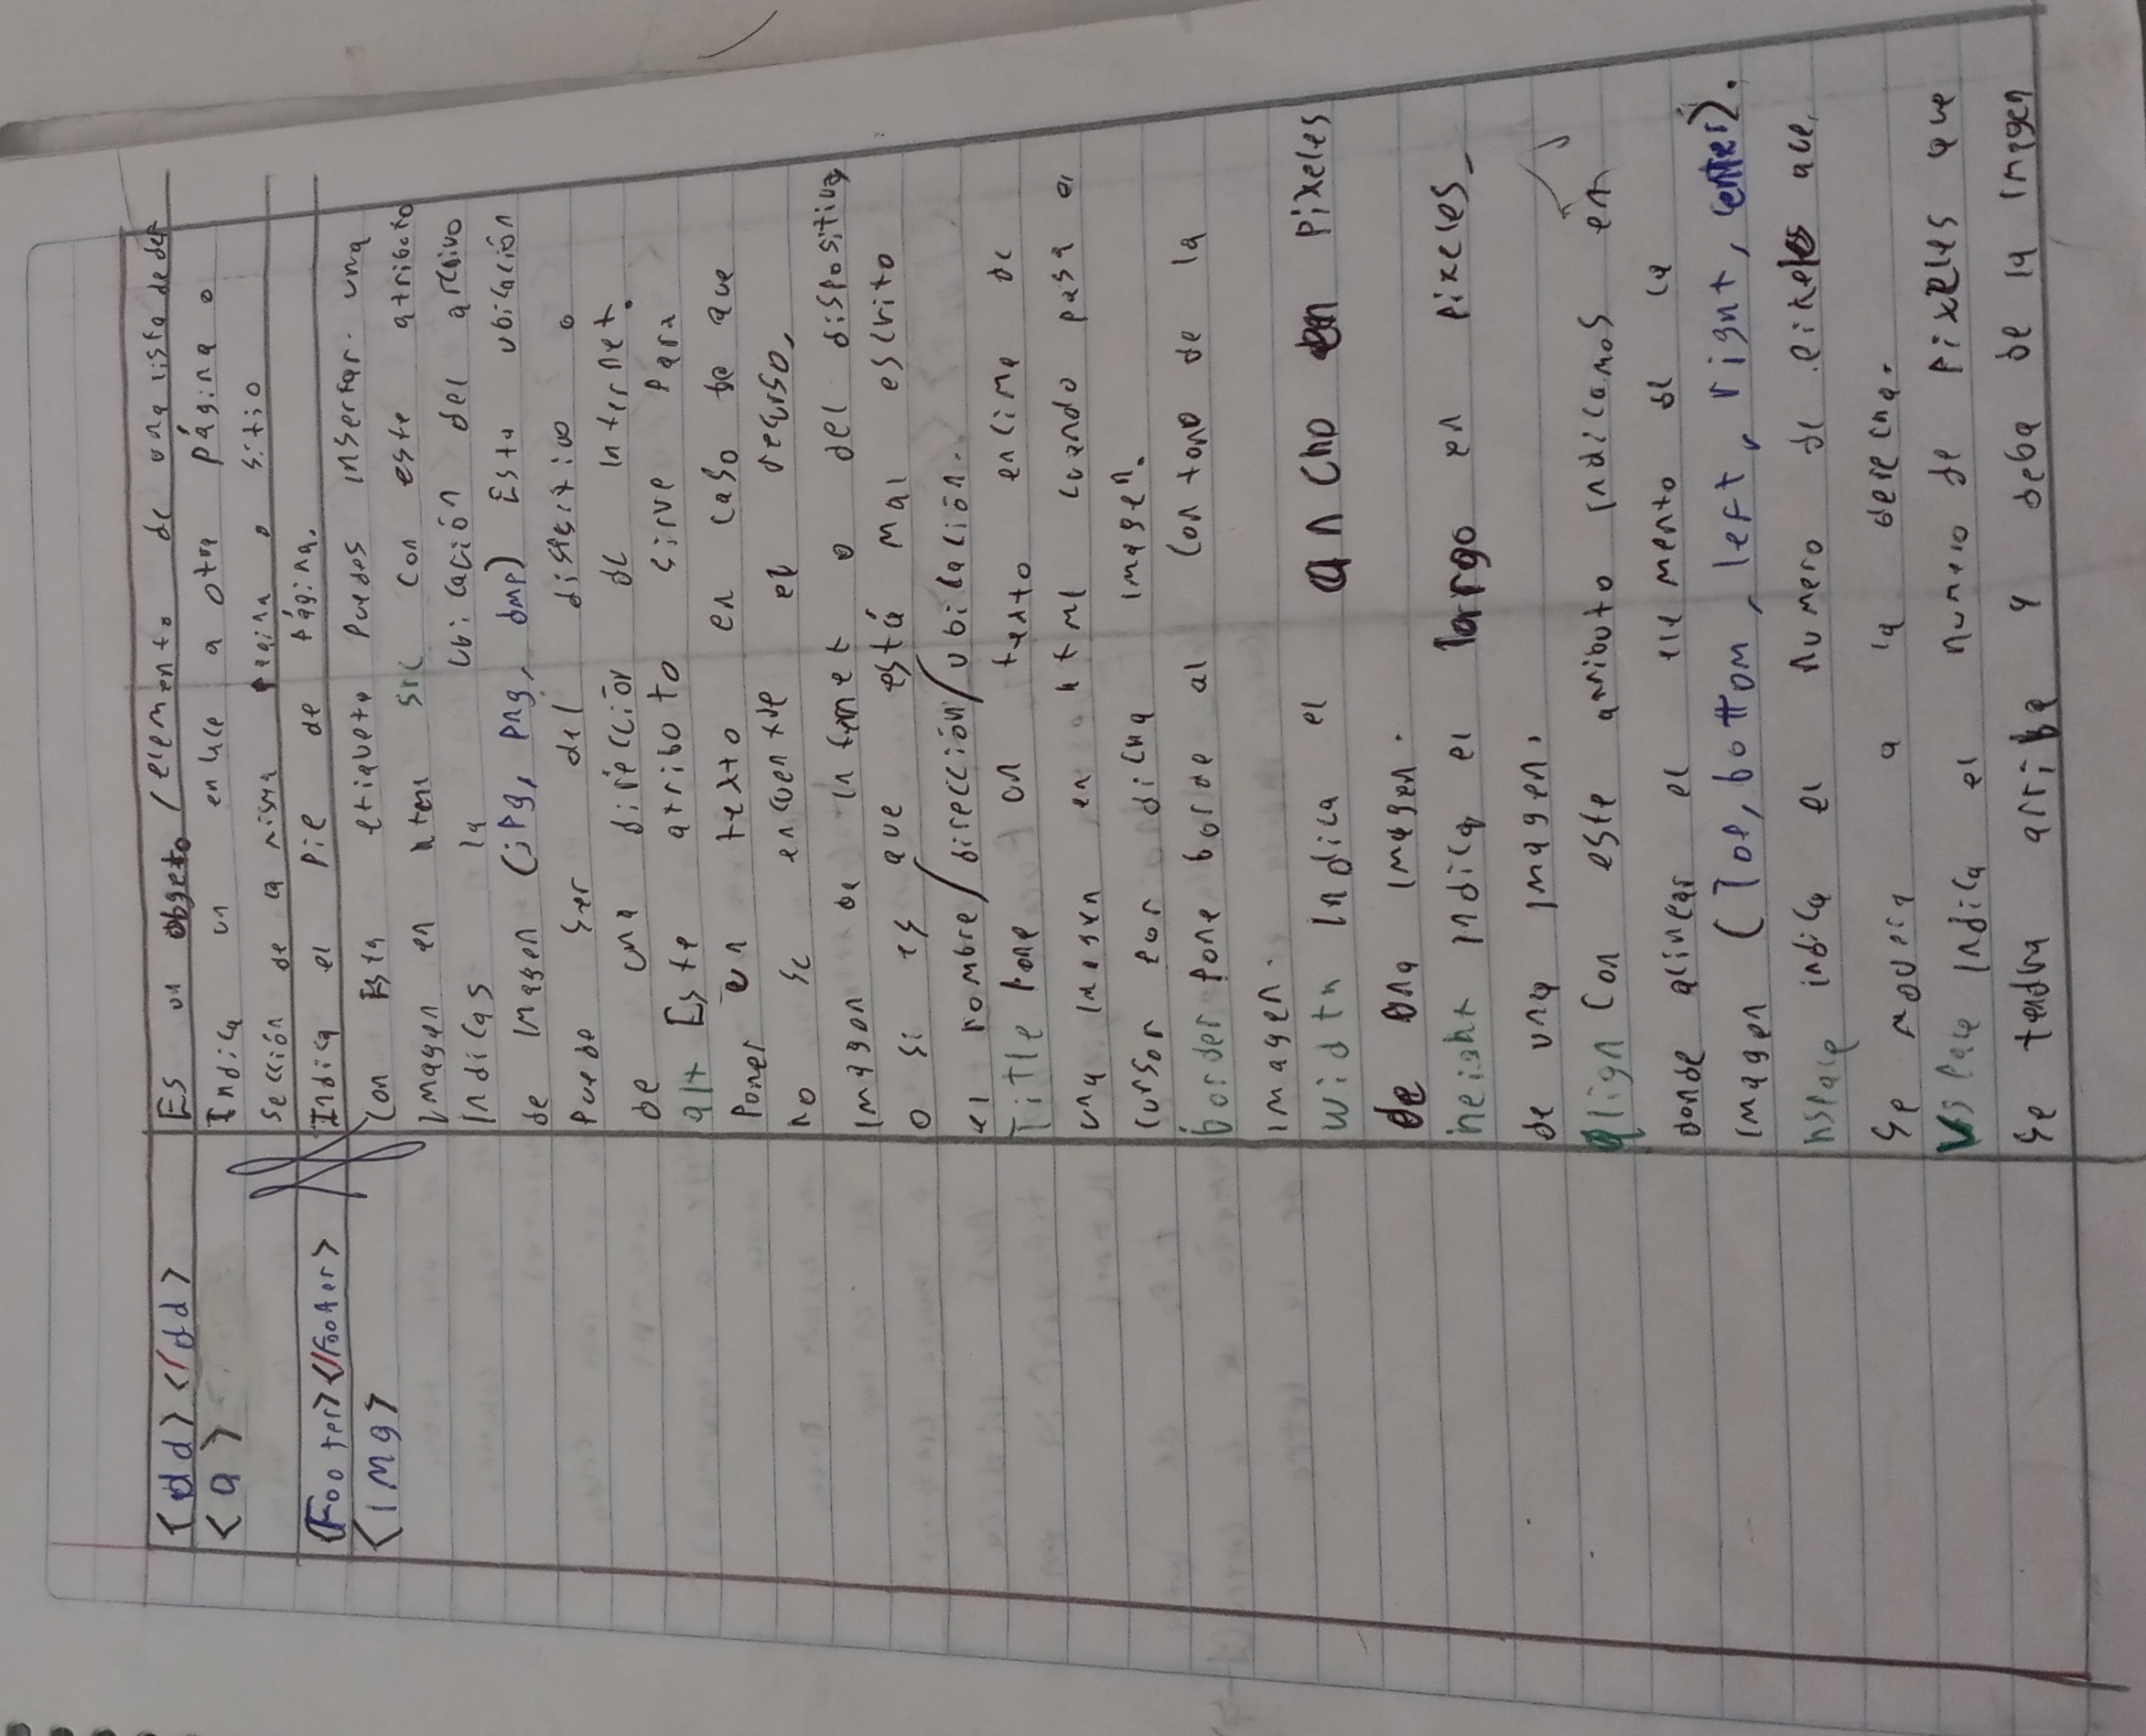 <dd></dd> Es un objeto/elemento de una lista de def
<a> Indica un enlace a otra página o
sección de la misma pagina o sitio
<Footer></footer> Indica el pie de página.
<img> Con Esta etiqueta puedes insertar una
imagen en html src con este atributo
indicas la ubicación del archivo
de imagen (jpg, png, bmp) Esta ubicación
puede ser del
de una dirección de internet.
alt Este atributo sirve para
poner un texto en caso de que
no se encuentre el recurso,
imagen de internet o del dispositivo,
o si es que está mal escrito
el nombre/dirección/ubicación.
Title pone un texto encima de
una imagen en html cuando pasa el
cursor por dicha imagen.
border pone borde al contorno de la
imagen.
width indica el ancho en pixeles
de una imagen.
height indica el largo en pixeles
de una imagen.
align Con este atributo indicamos en
donde alinear el elemento de la
imagen (Top, bottom, left, right, center).
hspace indica el numero de pixeles que
se movera a la derecha.
Vspace indica el numero de pixeles que
se tendra arriba y deba de la imagen